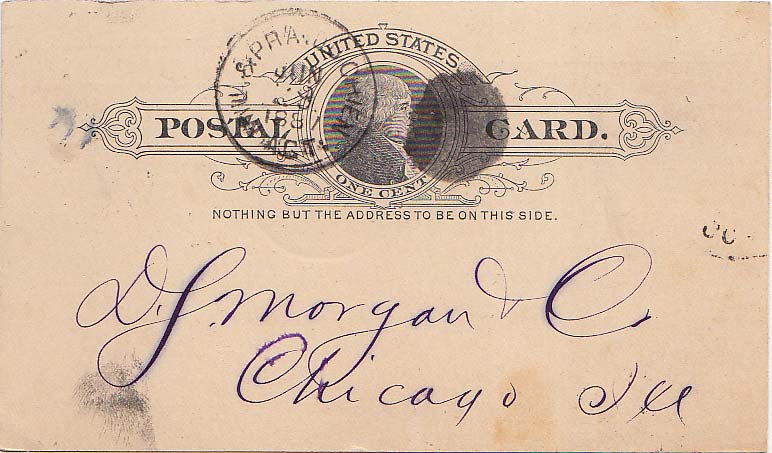 UNITED STATES
POSTAL CARD.
ONE CENT
NOTHING BUT THE ADDRESS TO BE ON THIS SIDE.
& PRA. CHIEN
JUN
188
AGT.
D. S. Morgan & C.
Chicago Ill